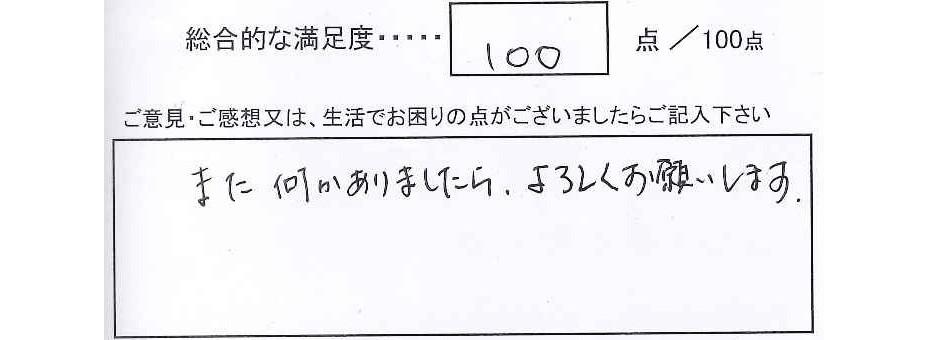 総合的な満足度・・・・・ 100 点 ／100点
ご意見・ご感想又は、生活でお困りの点がございましたらご記入下さい
また何かありましたら、よろしくお願いします.